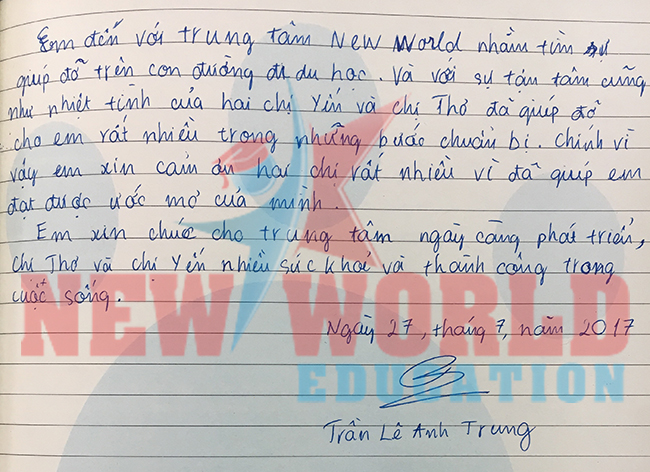 Em đến với trung tâm New World nhằm tìm sự
giúp đỡ trên con đường đi du học. Và với sự tận tâm cũng
như nhiệt tình của hai chị Yến và chị Thơ đã giúp đỡ
cho em rất nhiều trong những bước chuẩn bị. Chính vì
vậy em xin cảm ơn hai chị rất nhiều vì đã giúp em
đạt được ước mơ của mình.
Em xin chúc cho trung tâm ngày càng phát triển,
chị Thơ và chị Yến nhiều sức khoẻ và thành công trong
cuộc sống.
NEW WORLD
Ngày 27, tháng 7, năm 2017
EDUCATION
Trần Lê Anh Trung